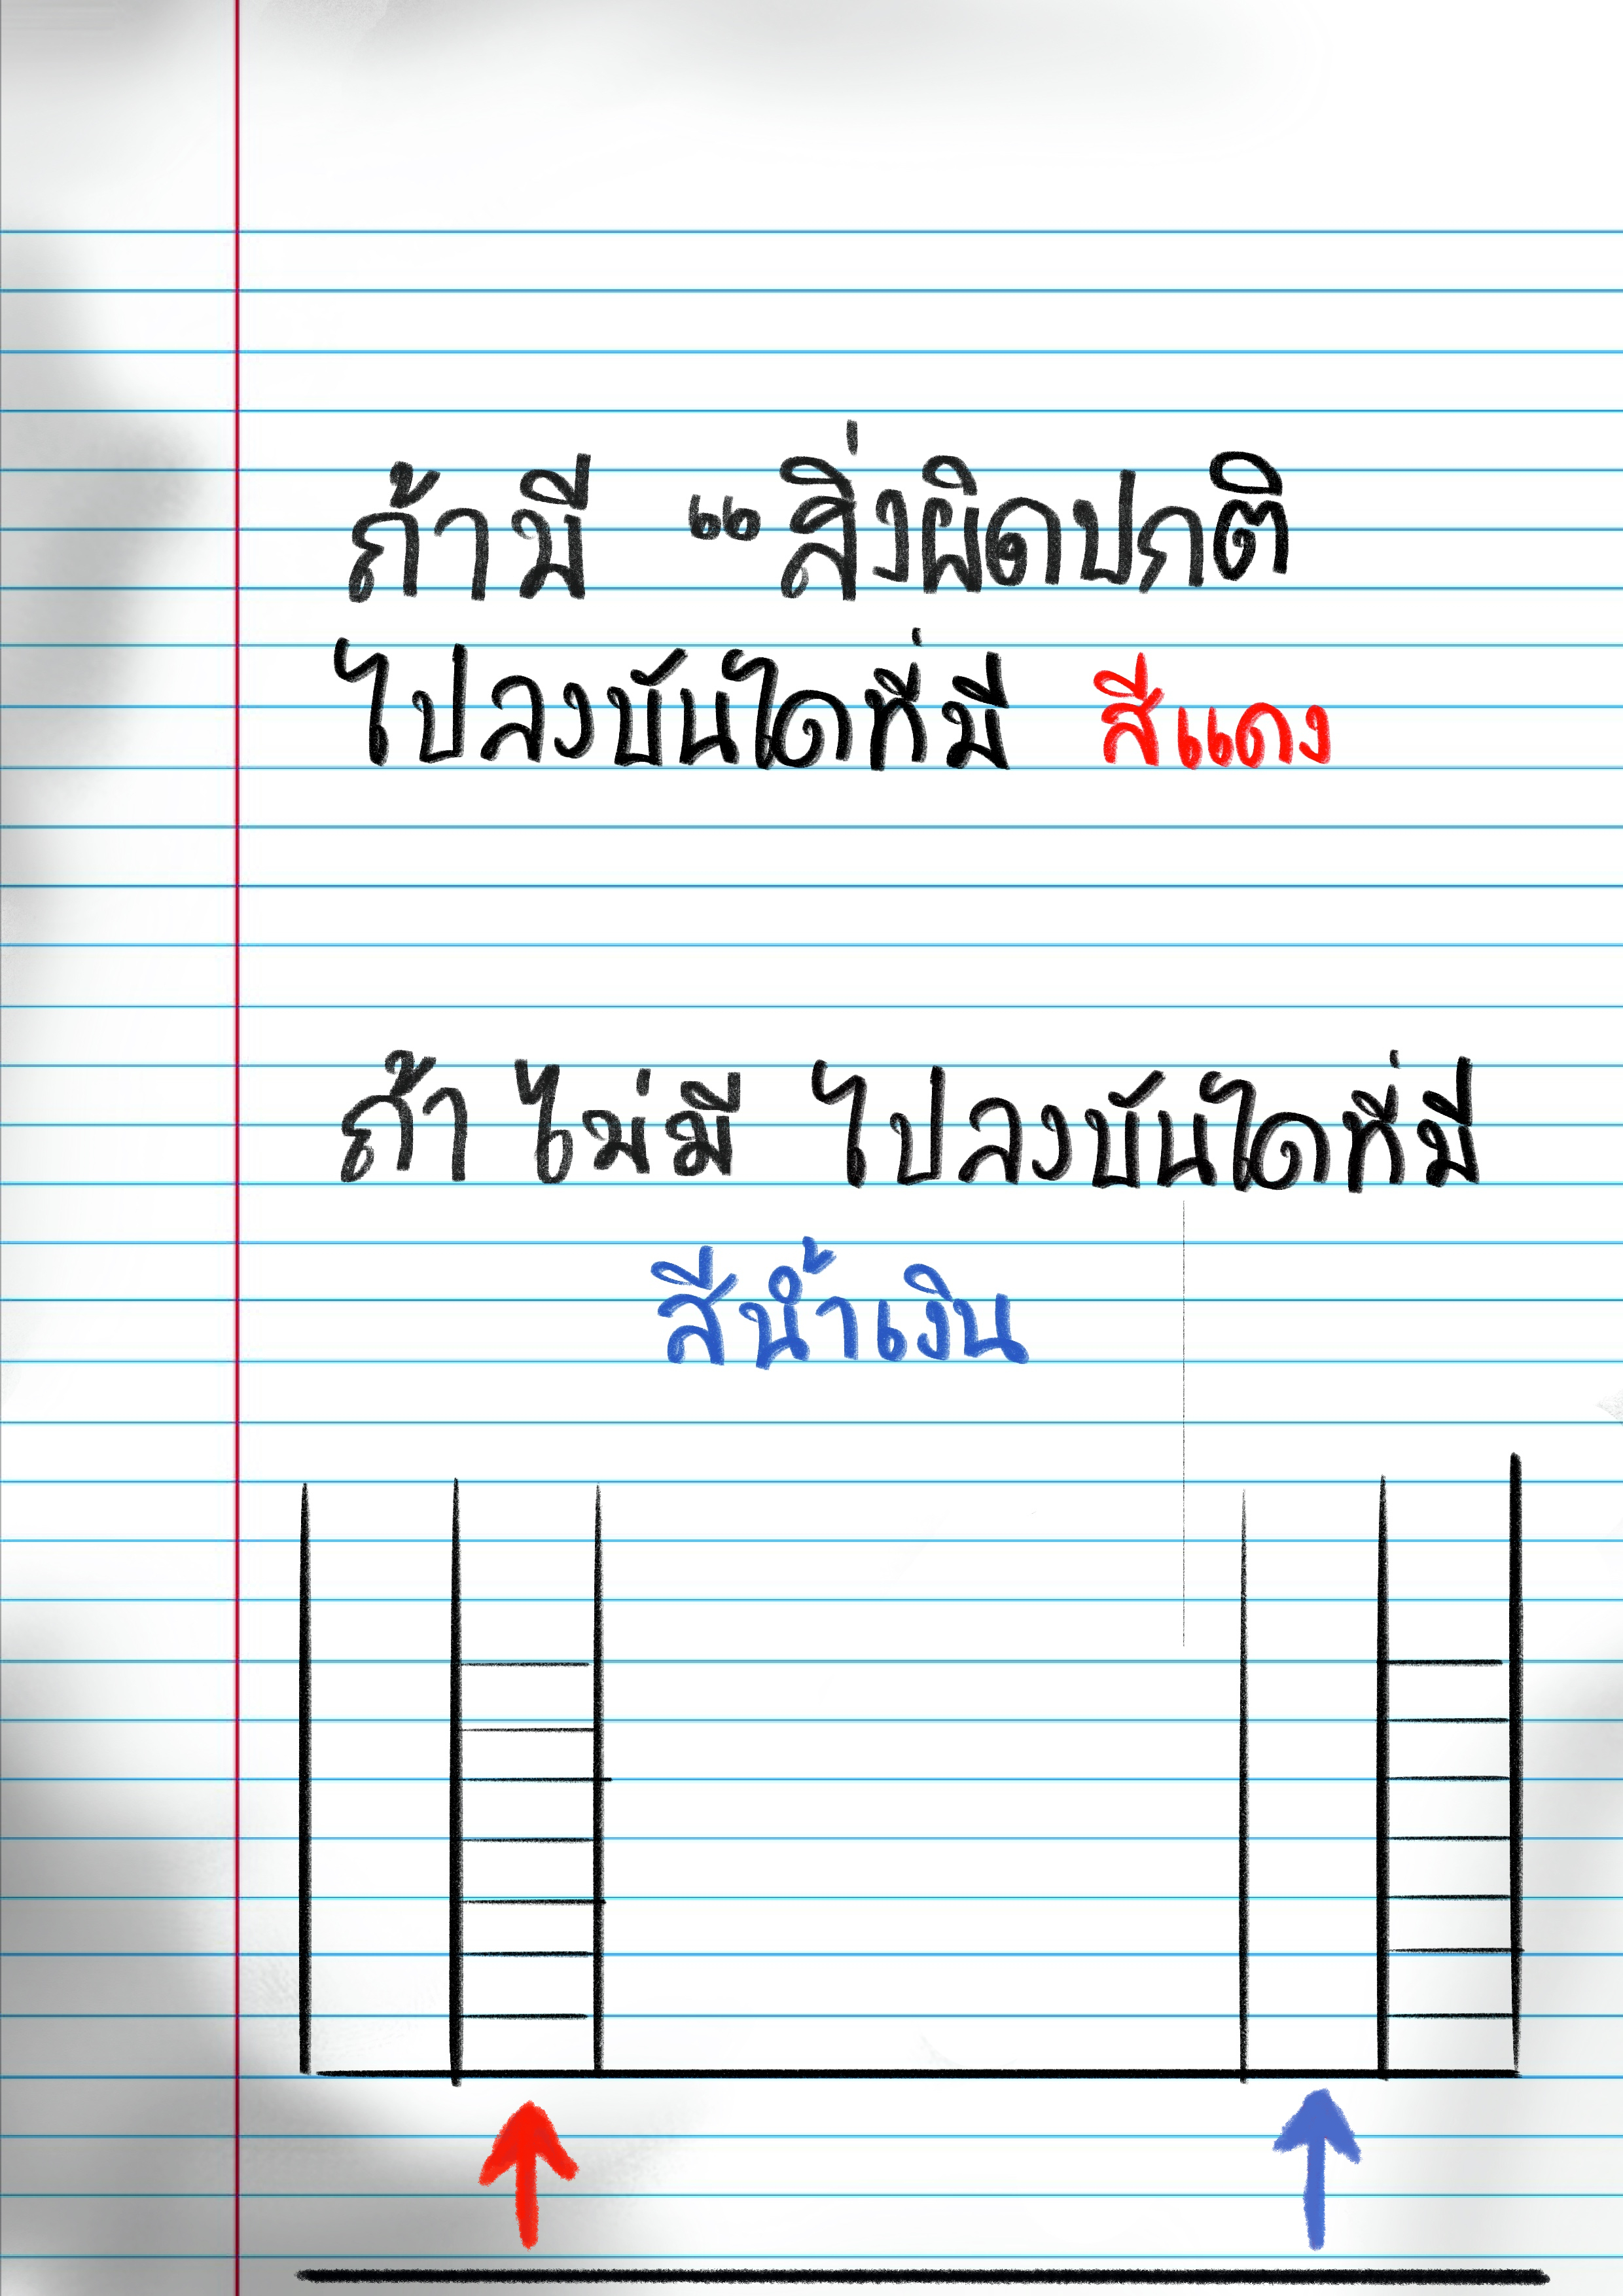 ถ้ามี “สิ่งผิดปกติ
ไปลงบันไดที่มี สีแดง
ถ้า ไม่มี ไปลงบันไดที่มี
สีน้ำเงิน